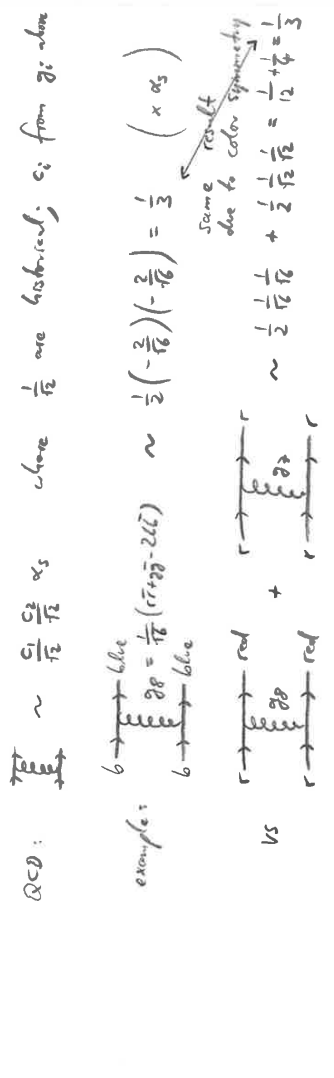 QCD: ~ c₁/√2 c₂/√2 αₛ where 1/√2 are historical, cᵢ from gᵢ above
example: b blue g8 = 1/√6 (rr̄+gḡ-2bb̄) b blue ~ 1/2 (-2/√6)(-2/√6) = 1/3 (× αₛ)
same result due to color symmetry
vs r red g8 r red + r r g7 r r ~ 1/2 1/√6 1/√6 + 1/2 1/√2 1/√2 = 1/12 + 1/4 = 1/3